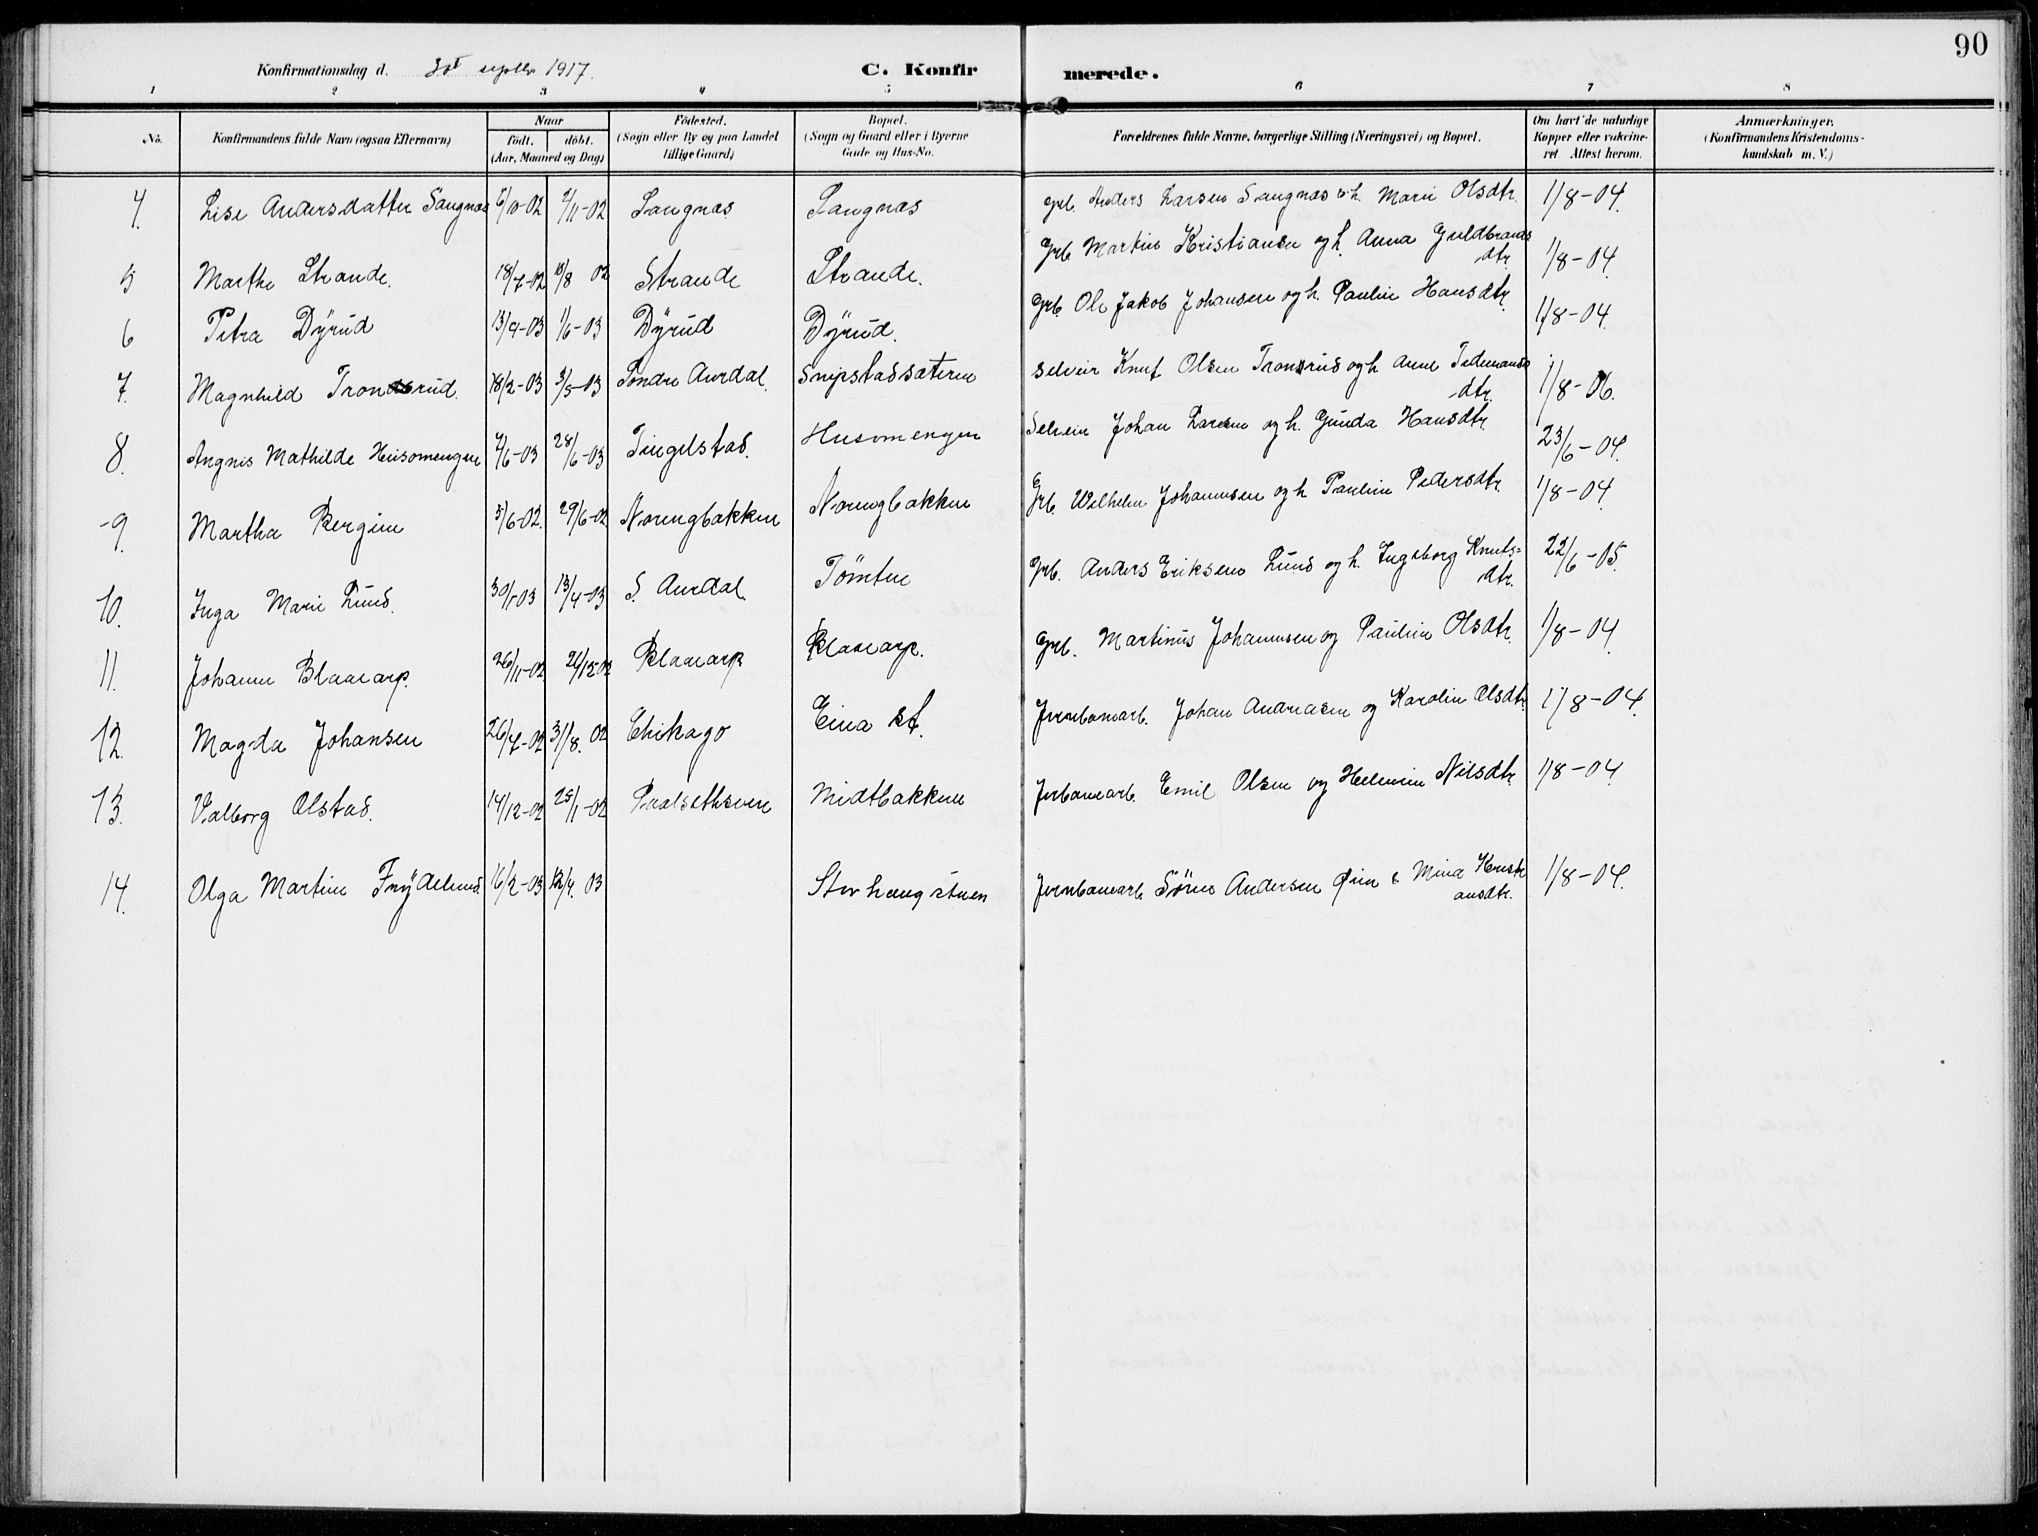 90
Konfirmationsdag d. 30t septbr 1917. C. Konfirmerede.
1 2 3 4 5 6 7 8
No. Konfirmandens fulde Navn (ogsaa Efternavn) Naar födt. döbt. (Aar, Maaned og Dag) Födested. (Sogn eller By og paa Landet tillige Gaard) Bopæl. (Sogn og Gaard eller i Byerne Gade og Hus-No. Forældrenes fulde Navne, borgerlige Stilling (Næringsvei) og Bopæl. Om havt de naturlige Kopper eller vakcineret Attest herom. Anmærkninger. (Konfirmandens Kristendomskundskab m. V.)
4. Lise Andersdatter Sangnæs 6/10-02 2/11-02 Sangnæs Sangnæs Grb. Anders Larsen Sangnæs o h. Marie Olsdtr. 1/8-04.
5 Marthe Strande. 18/7-02 10/8 02 Strande Strande. Grb Martin Kristiansen og h. Anna Guldbrandsdtr. 1/8-04.
6 Petra Dÿrud 13/9-03 1/6-03 Dÿrud Dÿrud. Grb. Ole Jakob Johansen og h. Pauline Hansdtr. 1/8-04.
7. Magnhild Trondsrud. 18/2-03 3/5-03 Söndre Aurdal. Snipstadsæteren Selveier Knut Olsen Tronsrud og h Anne Tidemandsdtr. 1/8-06.
8. Angnis Mathilde Husomengen 7/6-03 28/6-03 Tingelstad. Husomengen Selveier Johan Larsen og h. Gunda Hansdtr. 23/6-04.
9. Martha Bergine 5/6-02. 29/6-02 Norengbakken Norengbakken Grb. Wilhelm Johannsen og h Pauline Pedersdtr. 1/8-04.
10. Inga Marie Lund. 30/1-03 13/4-03 S. Aurdal. Tömten Grb. Anders Eriksen Lund og h. Ingeborg Knuts=dtr. 22/6-05.
11. Johanne Blaaarp. 26/11-02. 26/12-02 Blaaarp Blaaarp. Grb. Martinus Johannsen og Pauline Olsdtr. 1/8-04.
12. Magda Johansen 26/7-02 31/8. 02 Chikago Eina st. Jernbanearb. Johan Andreasen og Karoline Olsdtr. 1/8-04.
13. Valborg Olstad. 14/12-02 25/1-02 Paalsethsveen Midtbakken Jerbanearb. Emil Olsen og Helmine Nilsdtr. 1/8-04
14. Olga Martine Frÿdelund. 16/2-03 13/4. 03 Storhaugstuen Jernbanearb. Sören Andersen Öien & Mina Kristiansdtr. 1/8-04.